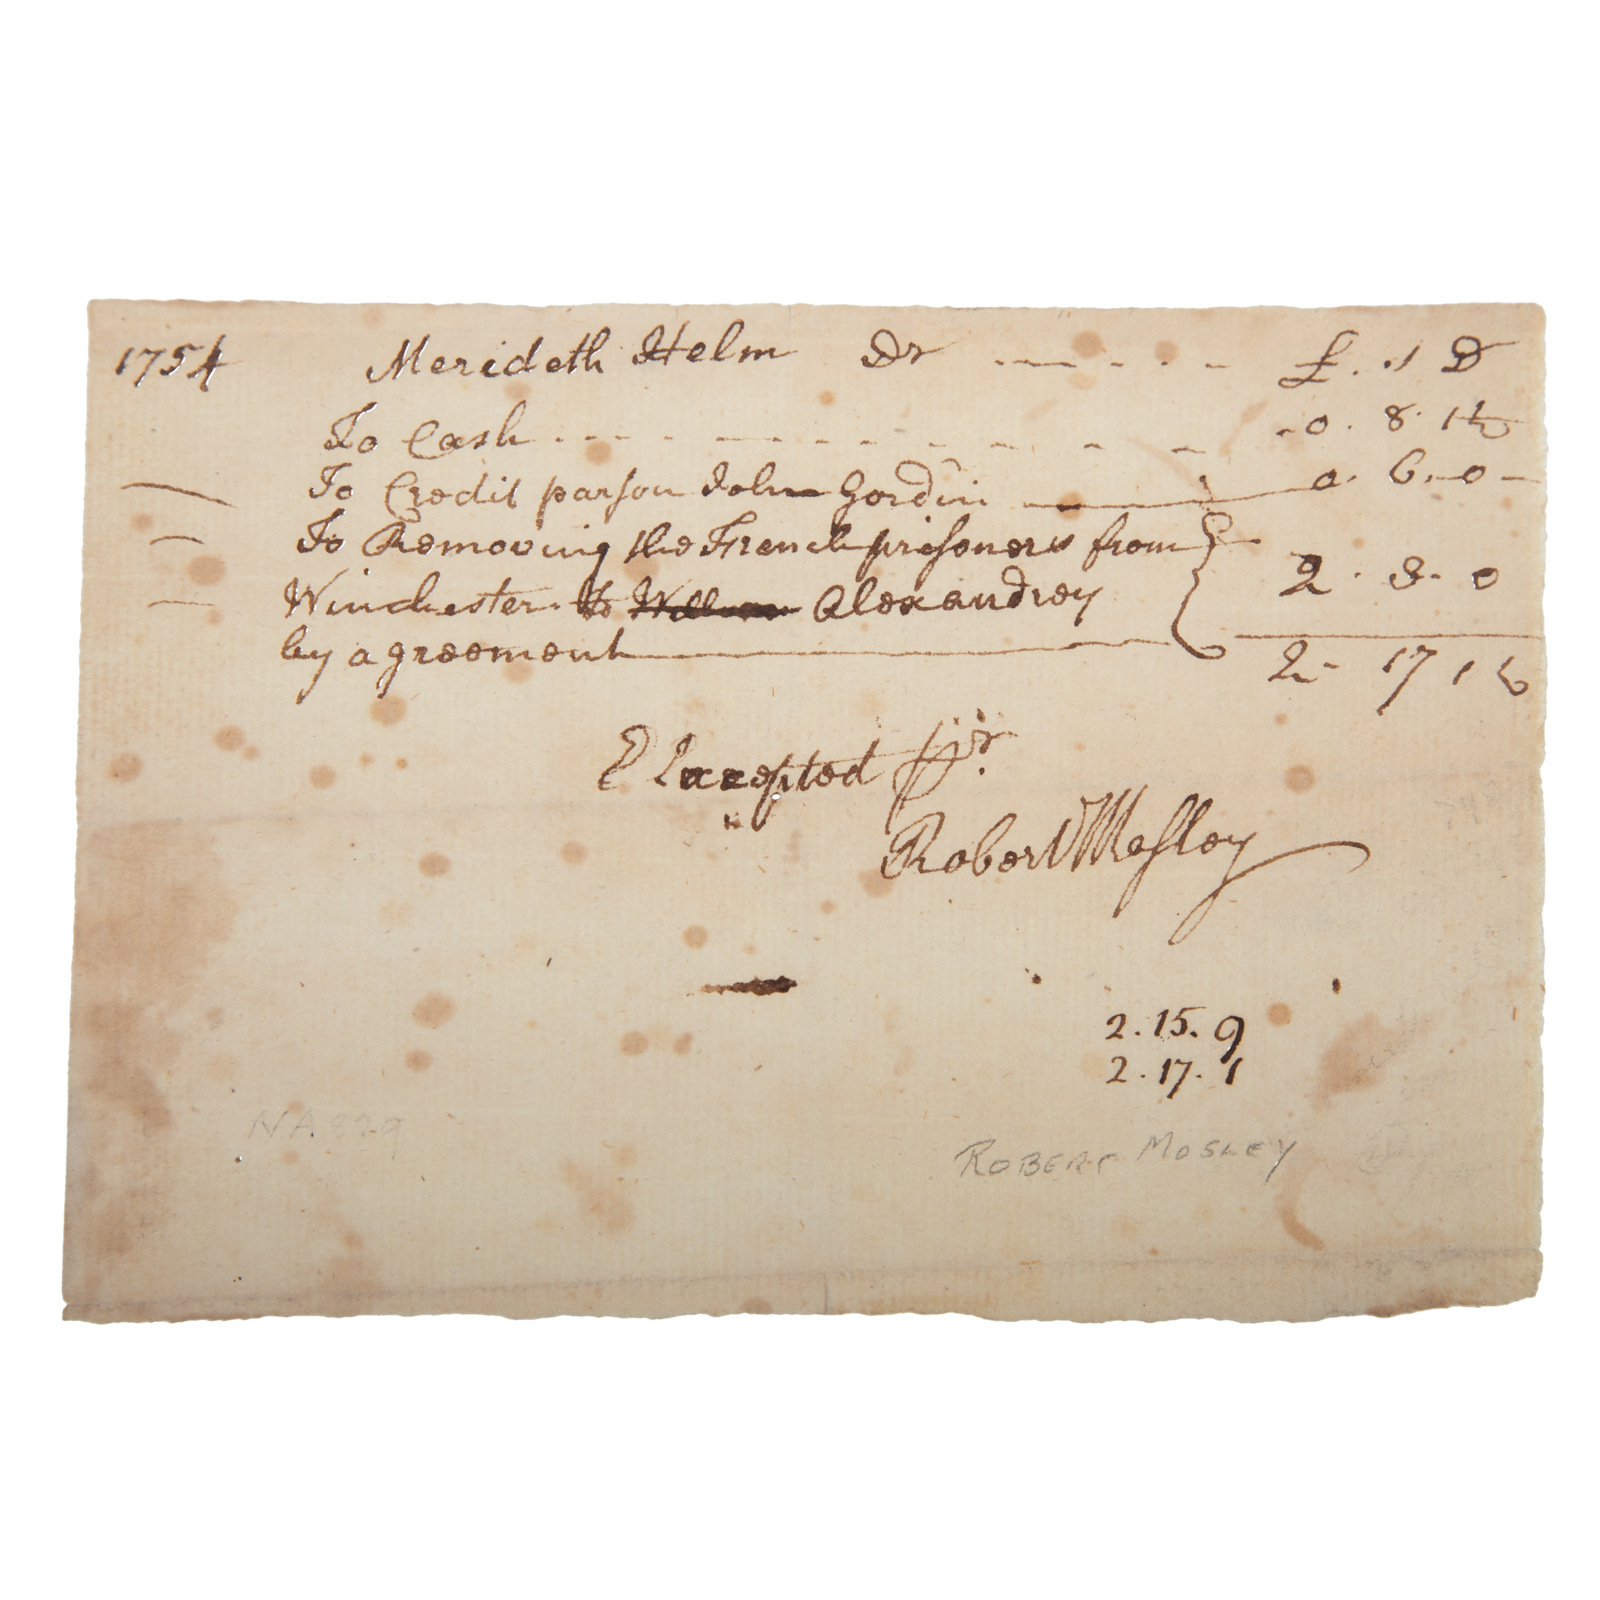 1754 Merideth Helm Dr £. s D
To Cash 0. 8. 1½
To Credit parson John Gordin 0. 6. 0
To Removing the French prisoners from
Winchester to Alexandrey 2. 3. 0
by agreement
2 17 1½
Excepted pr.
Robert Mosley
2.15.9
2.17.1
NA 829
ROBERT MOSLEY